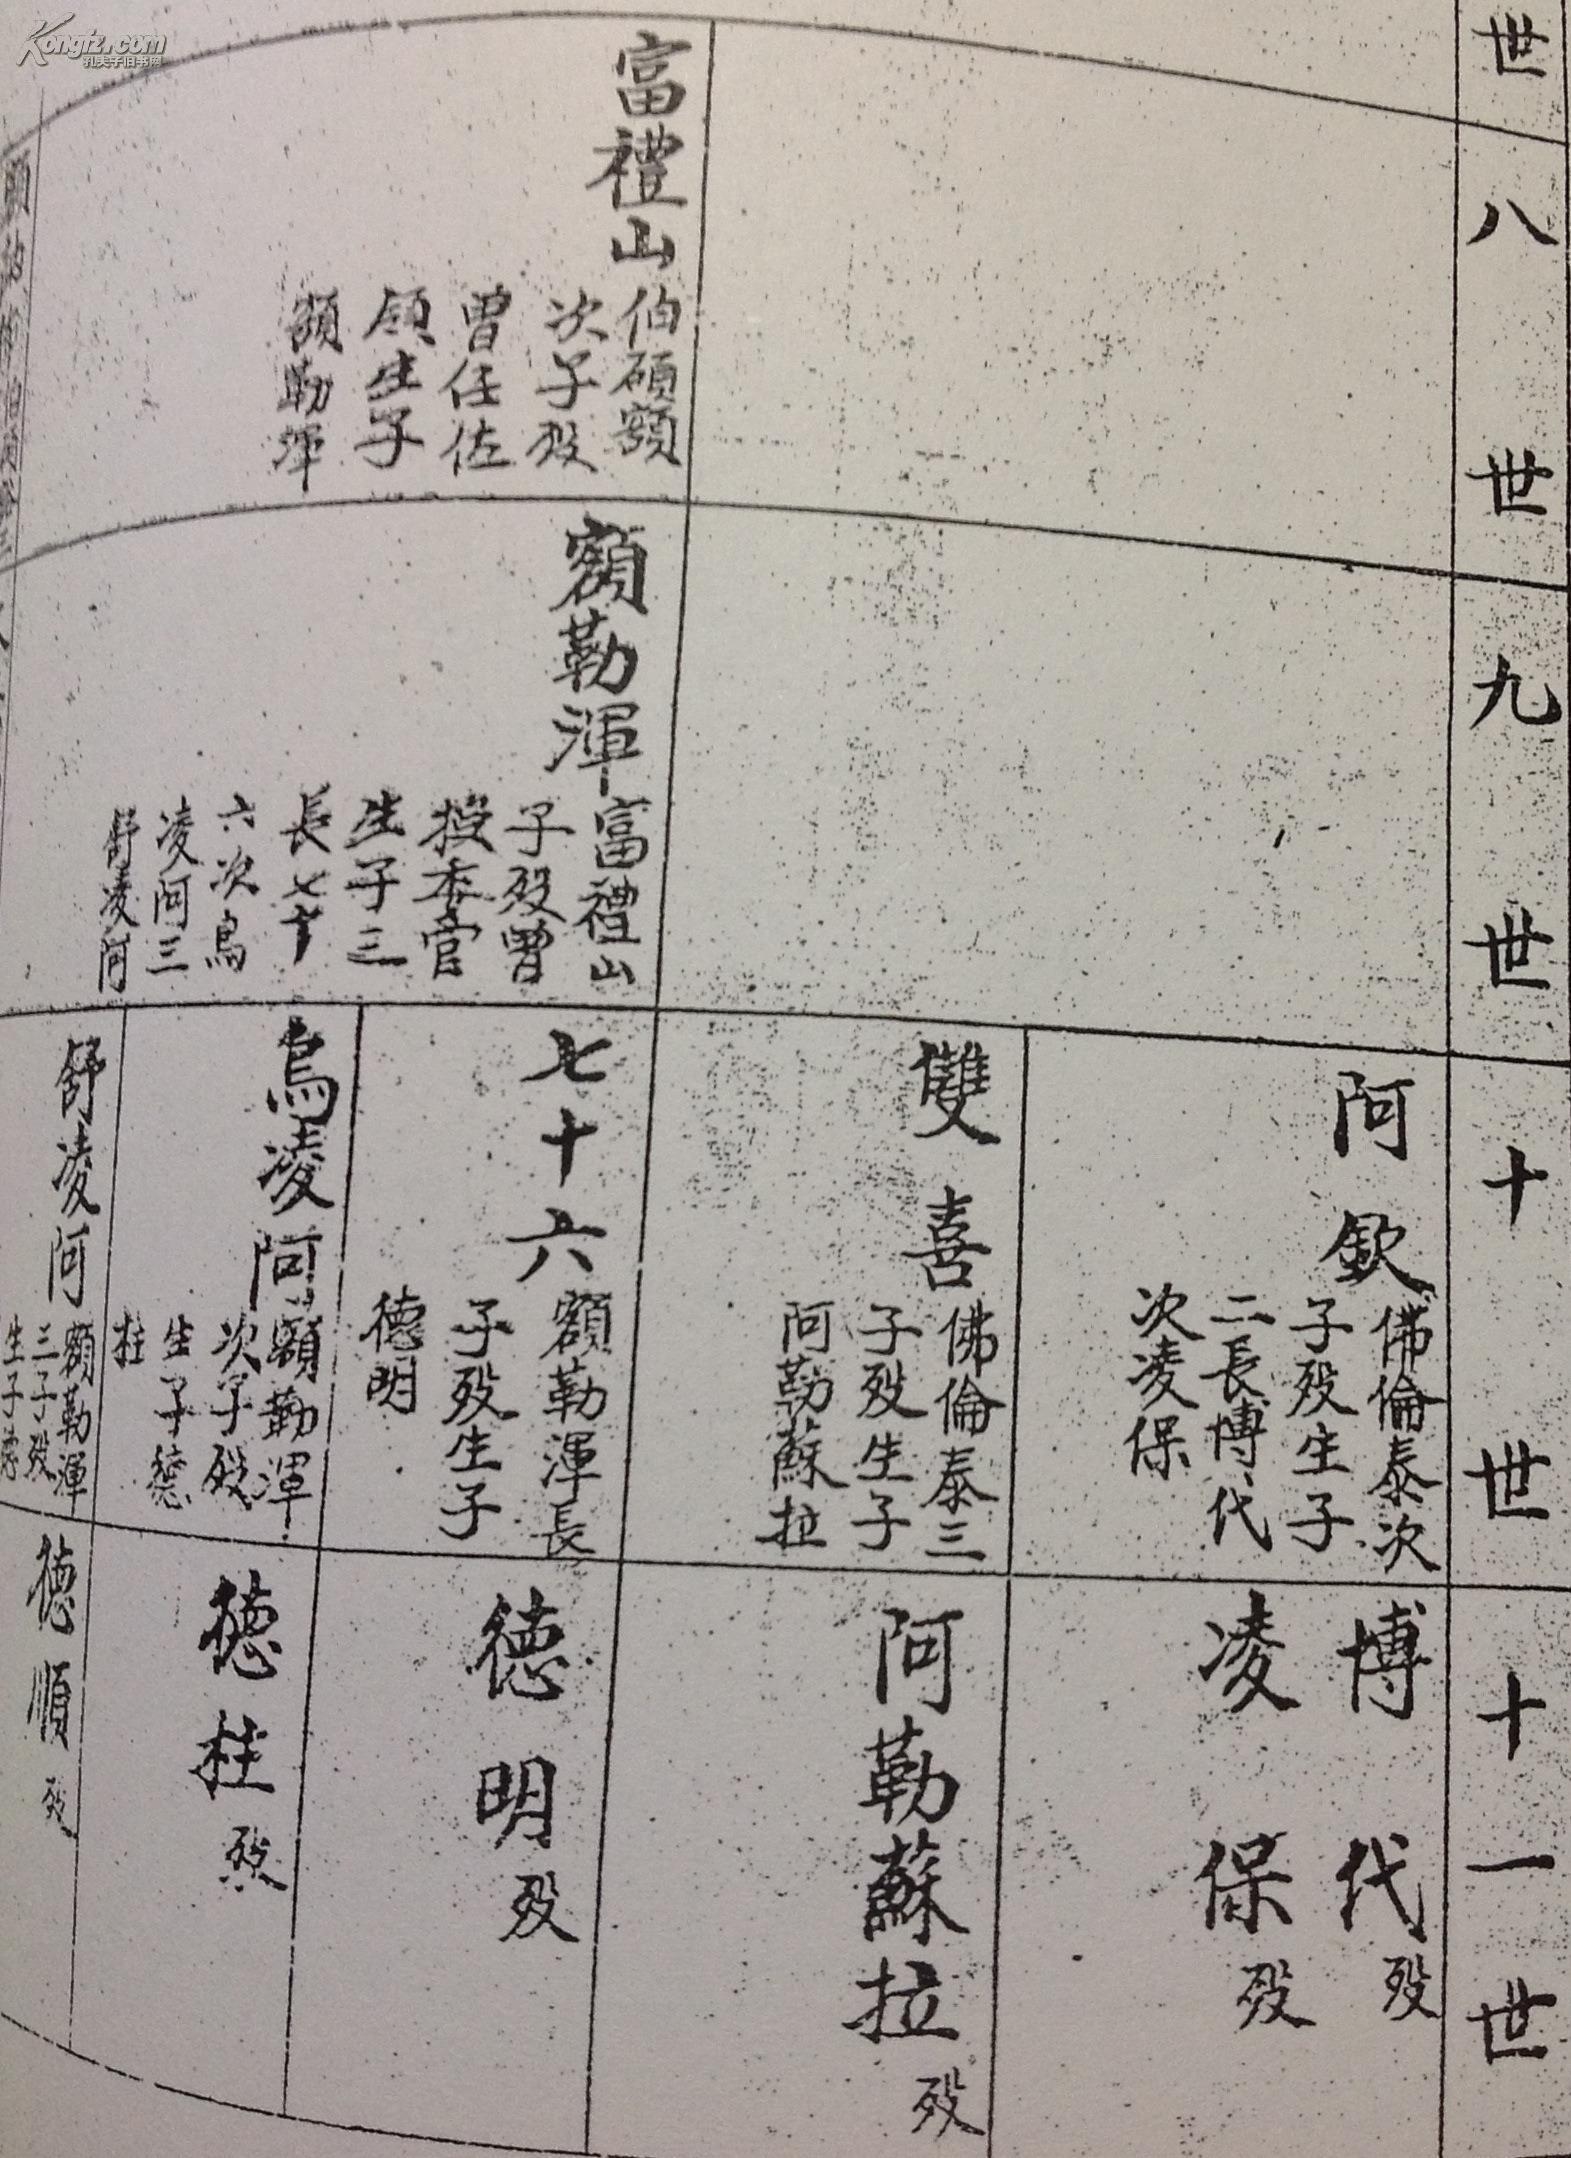 世
八世
九世
十世
十一世
富禮山
伯碩額
次子歿
曾任佐
領生子
額勒渾
額勒渾
富禮山
子歿曾
授本官
生子三
長七十
六次烏
凌阿三
舒凌阿
阿欽
佛倫泰次
子歿生子
二長博代
次凌保
雙喜
佛倫泰三
子歿生子
阿勒蘇拉
七十六
額勒渾長
子歿生子
德明
烏凌阿
額勒渾
次子歿
生子德
柱
舒凌阿
額勒渾
三子歿
生子德
博代歿
凌保歿
阿勒蘇拉歿
德明歿
德柱歿
德順歿
Kongfz.com
孔夫子旧书网